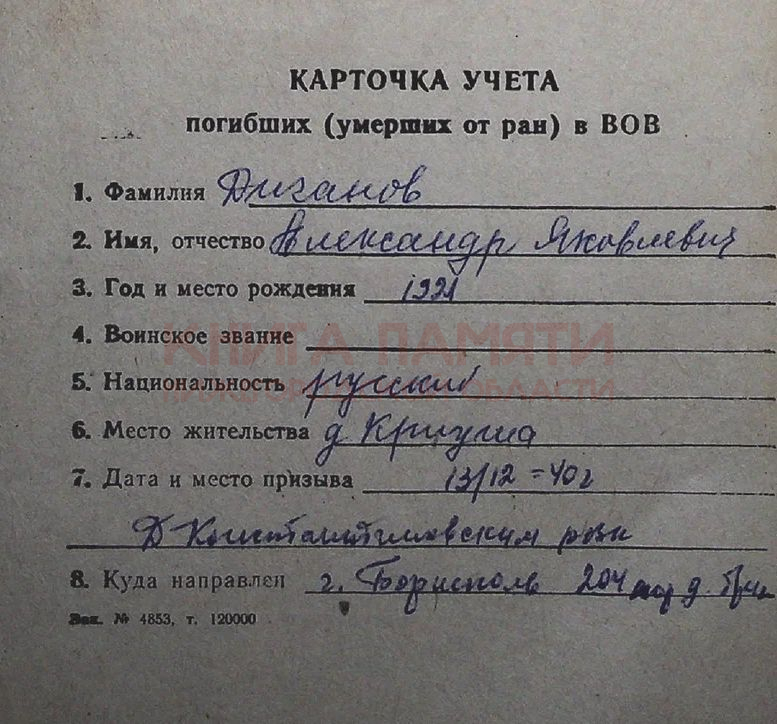 КАРТОЧКА УЧЕТА
погибших (умерших от ран) в ВОВ
1. Фамилия Диганов
2. Имя, отчество Александр Яковлевич
3. Год и место рождения 1921
4. Воинское звание
КНИГА ПАМЯТИ
5. Национальность русский
ОБЛАСТИ
6. Место жительства д Криуша
7. Дата и место призыва 13/12-40г
Д Константиновским рвк
8. Куда направлен г. Борисполь 204
Зак. № 4853, т. 120000